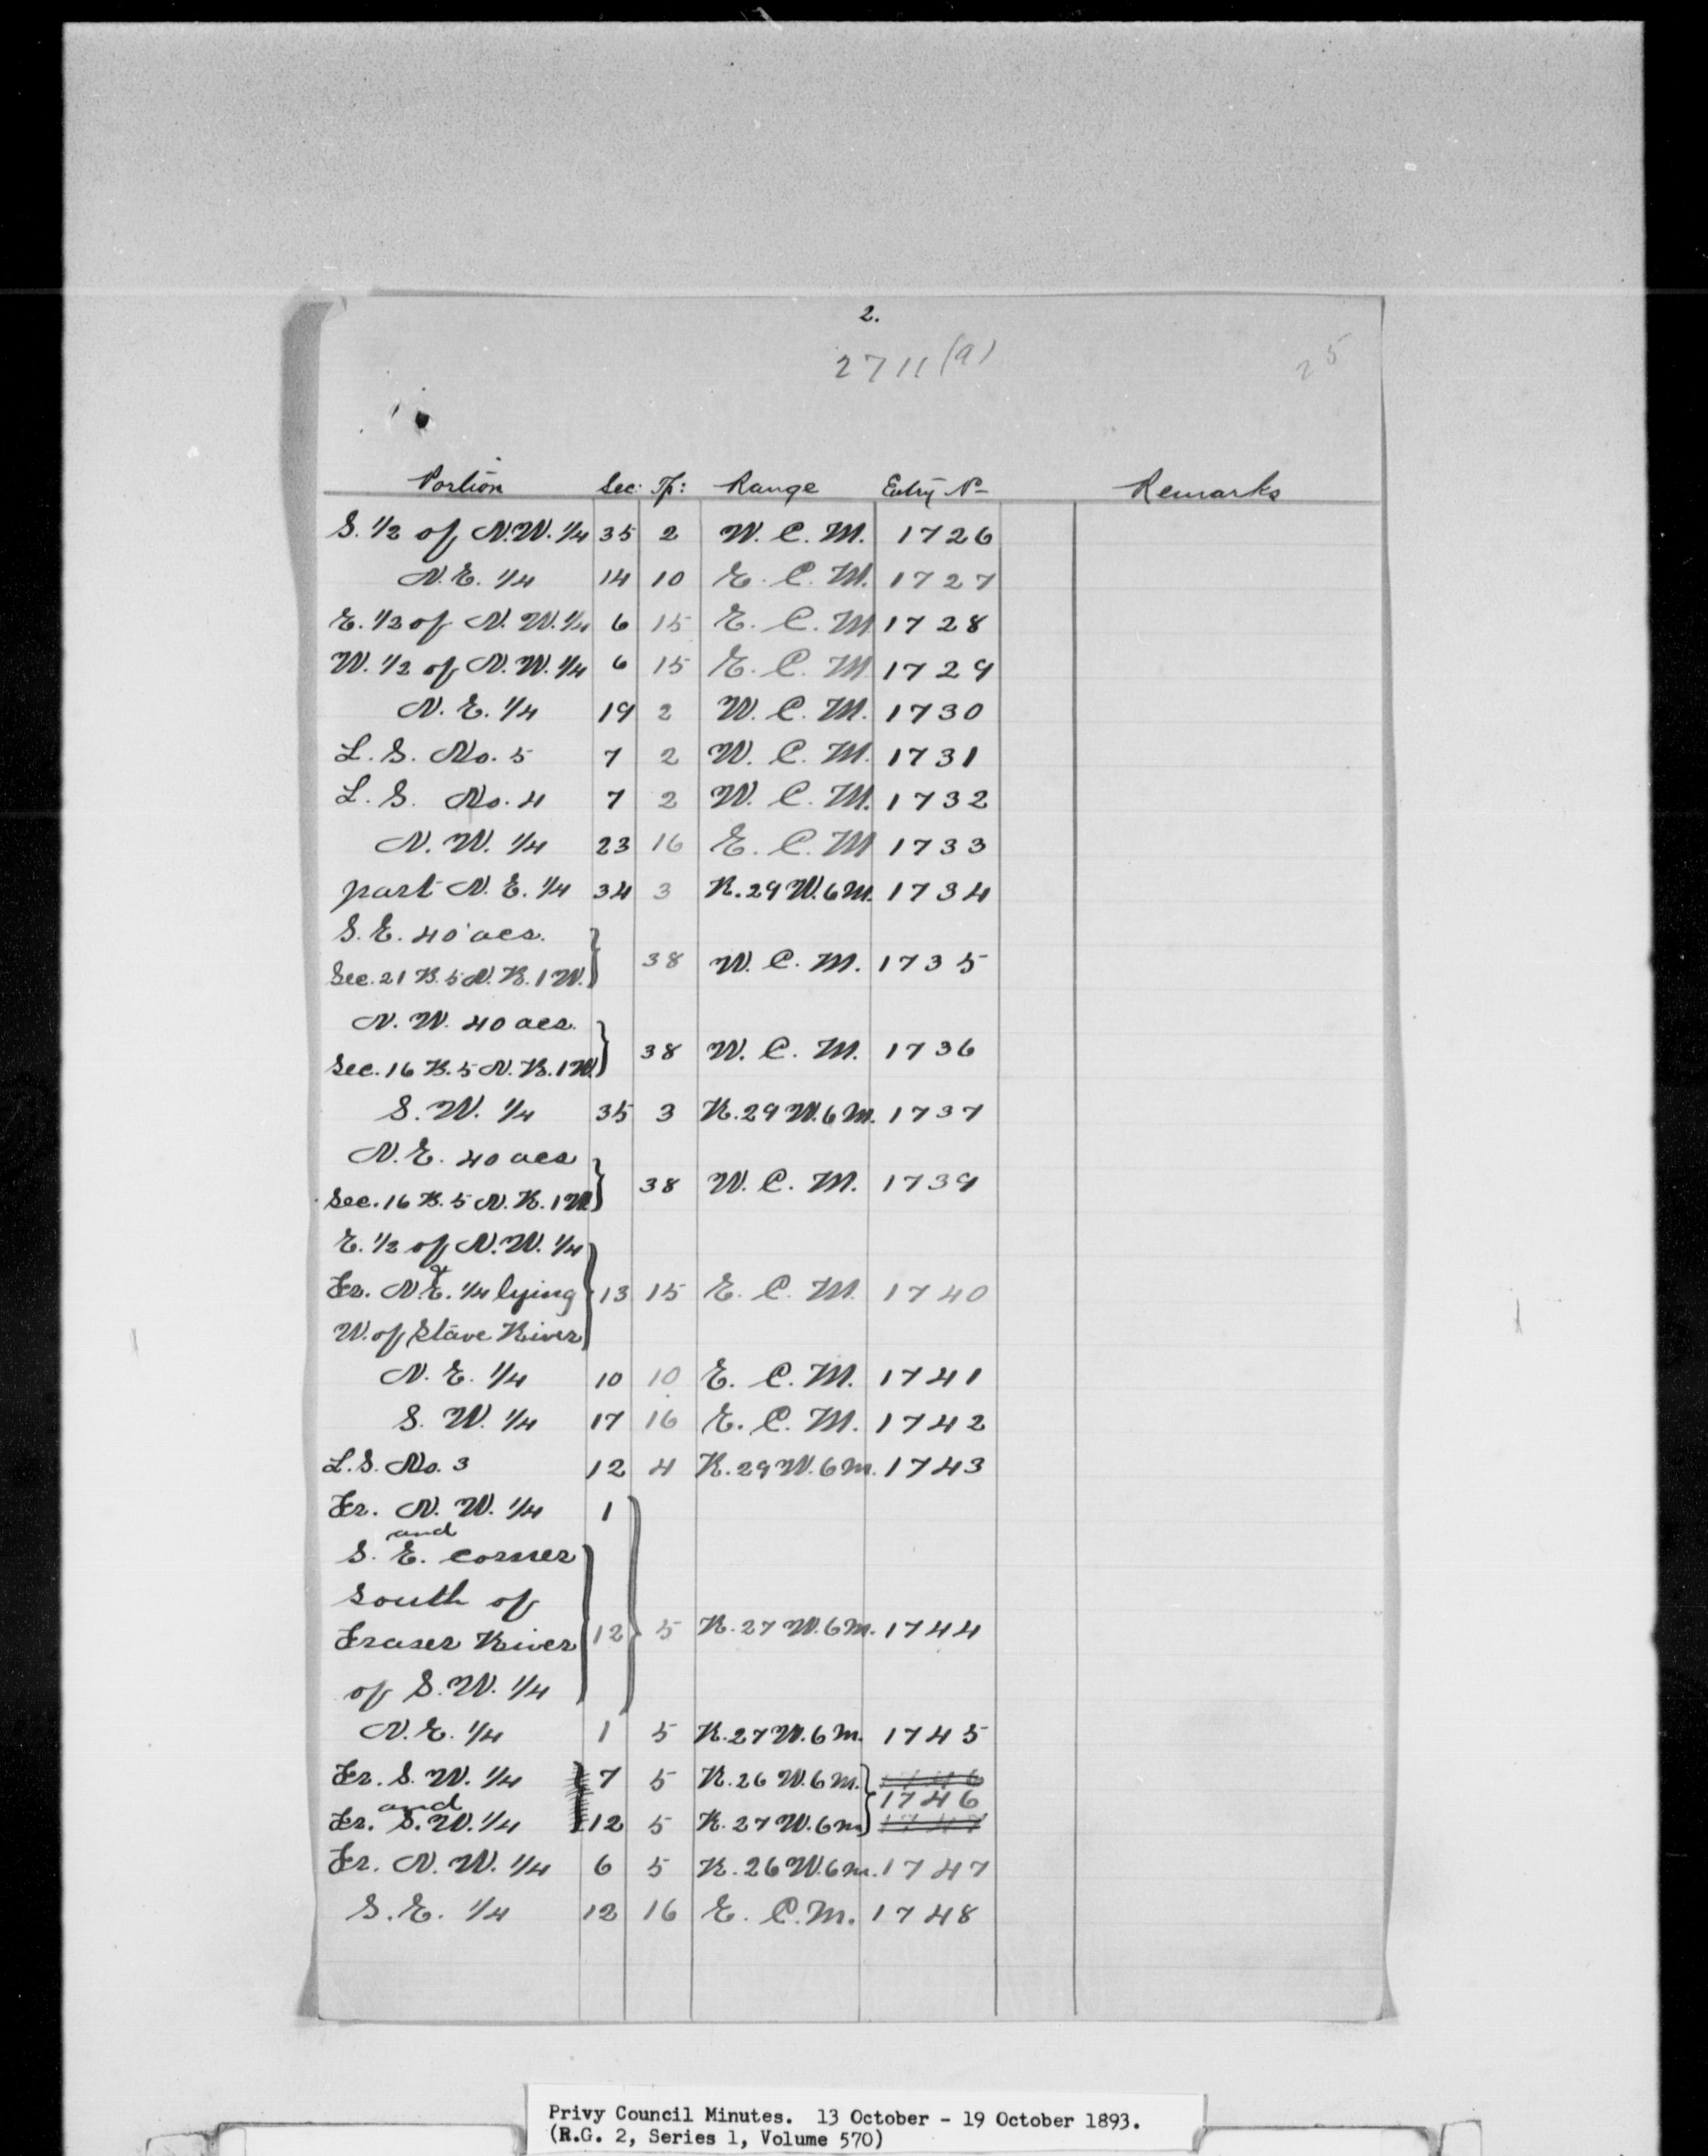 2.
2711(a)
25
Portion Sec: Tp: Range Entry No Remarks
S. 1/2 of N.W. 1/4 35 2 W. C. M. 1726
N.E. 1/4 14 10 E. C. M. 1727
E. 1/2 of N. W. 1/4 6 15 E. C. M 1728
W. 1/2 of N. W. 1/4 6 15 E. C. M 1729
N. E. 1/4 19 2 W. C. M. 1730
L. S. No. 5 7 2 W. C. M. 1731
L. S. No. 4 7 2 W. C. M. 1732
N. W. 1/4 23 16 E. C. M 1733
part N. E. 1/4 34 3 R. 29 W. 6 M. 1734
S. E. 40 acs.
Sec. 21 B. 5 N. R. 1 W. } 38 W. C. M. 1735
N. W. 40 acs.
Sec. 16 B. 5 N. R. 1 W. } 38 W. C. M. 1736
S. W. 1/4 35 3 R. 29 W. 6 M. 1737
N. E. 40 acs
Sec. 16 B. 5 N. R. 1 W } 38 W. C. M. 1739
E. 1/2 of N. W. 1/4
&
Fr. N. E. 1/4 lying } 13 15 E. C. M. 1740
W. of Stave River
N. E. 1/4 10 10 E. C. M. 1741
S. W. 1/4 17 16 E. C. M. 1742
L. S. No. 3 12 4 R. 29 W. 6 M. 1743
Fr. N. W. 1/4 1
and
S. E. corner
South of
Fraser River } 12 } 5 R. 27 W. 6 M. 1744
of S. W. 1/4
N. E. 1/4 1 5 R. 27 W. 6 M. 1745
Fr. S. W. 1/4 7 5 R. 26 W. 6 M. } 1746
and 1746
Fr. S. W. 1/4 12 5 R. 27 W. 6 M } 1747
Fr. N. W. 1/4 6 5 R. 26 W. 6 M. 1747
S. E. 1/4 12 16 E. C. M. 1748
Privy Council Minutes. 13 October - 19 October 1893.
(R.G. 2, Series 1, Volume 570)